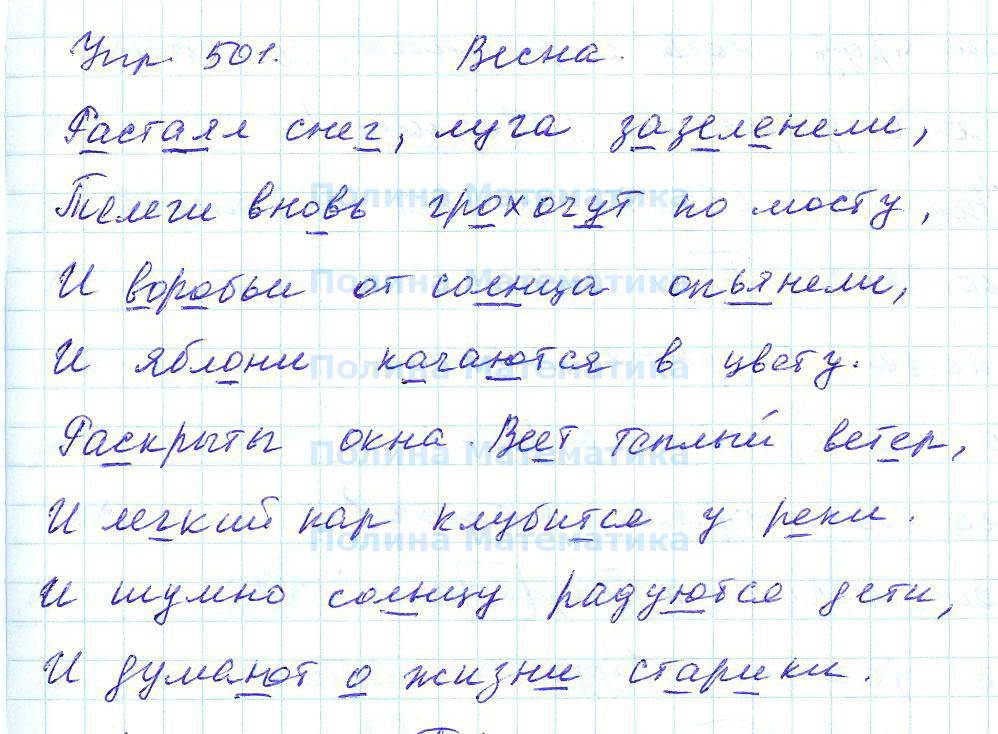 Упр. 501. Весна.
Растаял снег, луга зазеленели,
Телеги вновь грохочут по мосту,
Полина Математика
И воробьи от солнца опьянели,
Полина Математика
И яблони качаются в цвету.
Полина Математика
Раскрыты окна. Веет теплый ветер,
Полина Математика
И легкий пар клубится у реки.
Полина Математика
И шумно солнцу радуются дети,
И думают о жизни старики.